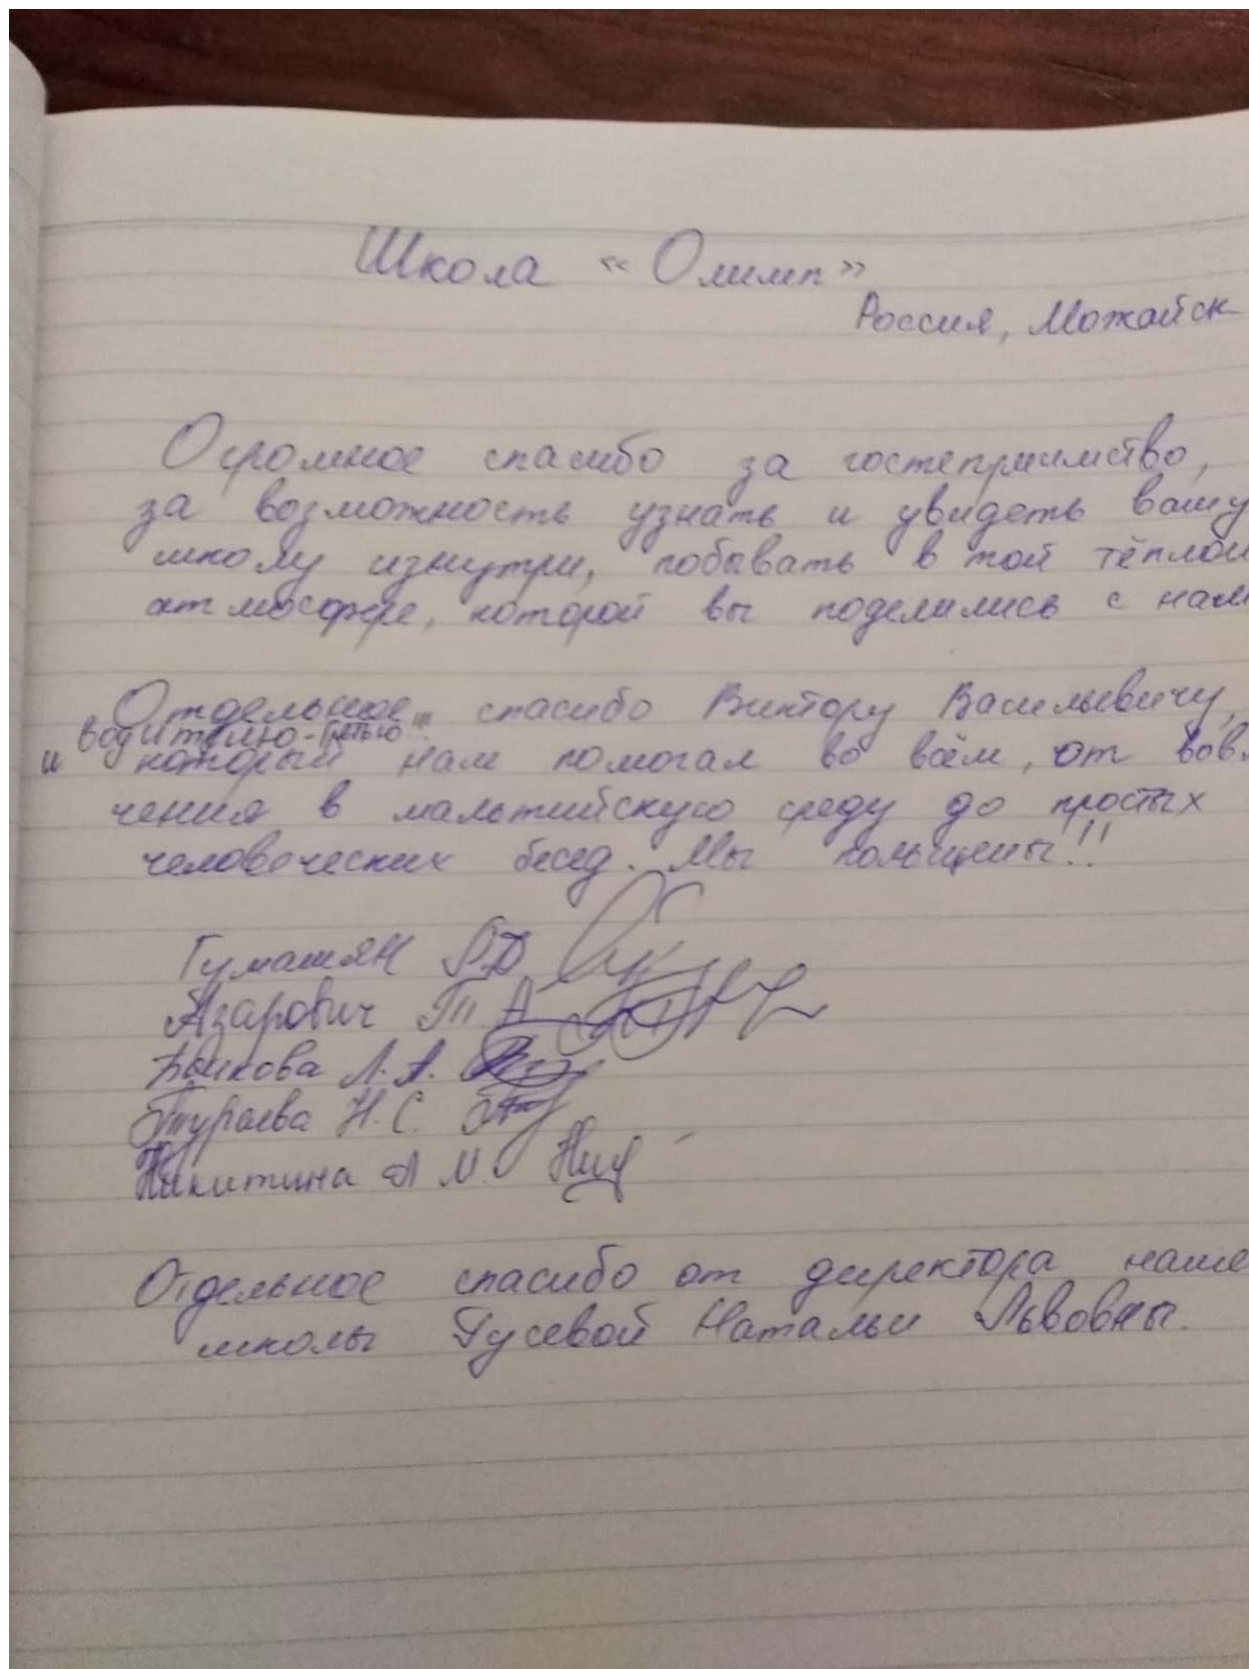 Школа «Олимп»
Россия, Можайск
Огромное спасибо за гостеприимство,
за возможность узнать и увидеть вашу
школу изнутри, побывать в той тёплой
атмосфере, которой вы поделились с нам
Отдельное спасибо Виктору Васильевичу,
и водителю-
который нам помогал во всём, от вовл
чения в мальтийскую среду до простых
человеческих бесед. Мы польщены!!
Гумашян Р.Д
Азарович Т. А
Быкова Л. А.
Тураева Н. С.
Никитина А М.
Отдельное спасибо от директора наше
школы Гусевой Натальи Львовны.